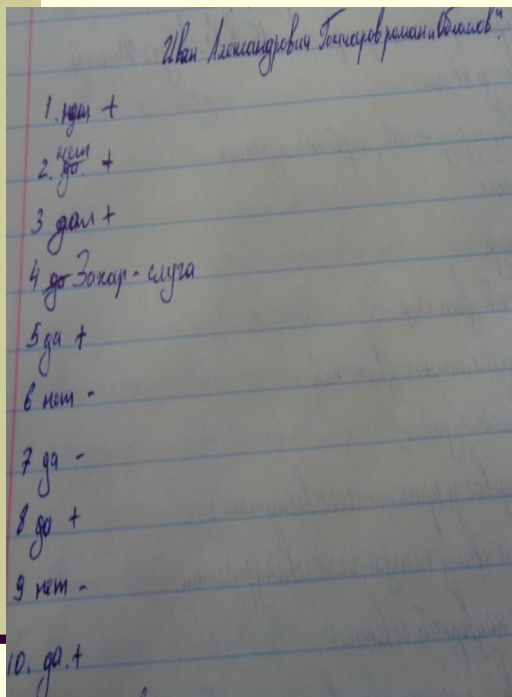 Иван Александрович Гончаров роман „Обломов"
1. да +
2. нет до. +
3 да +
4 до Захар - слуга
5 да +
6 нет -
7 да -
8 да +
9 нет -
10. да. +